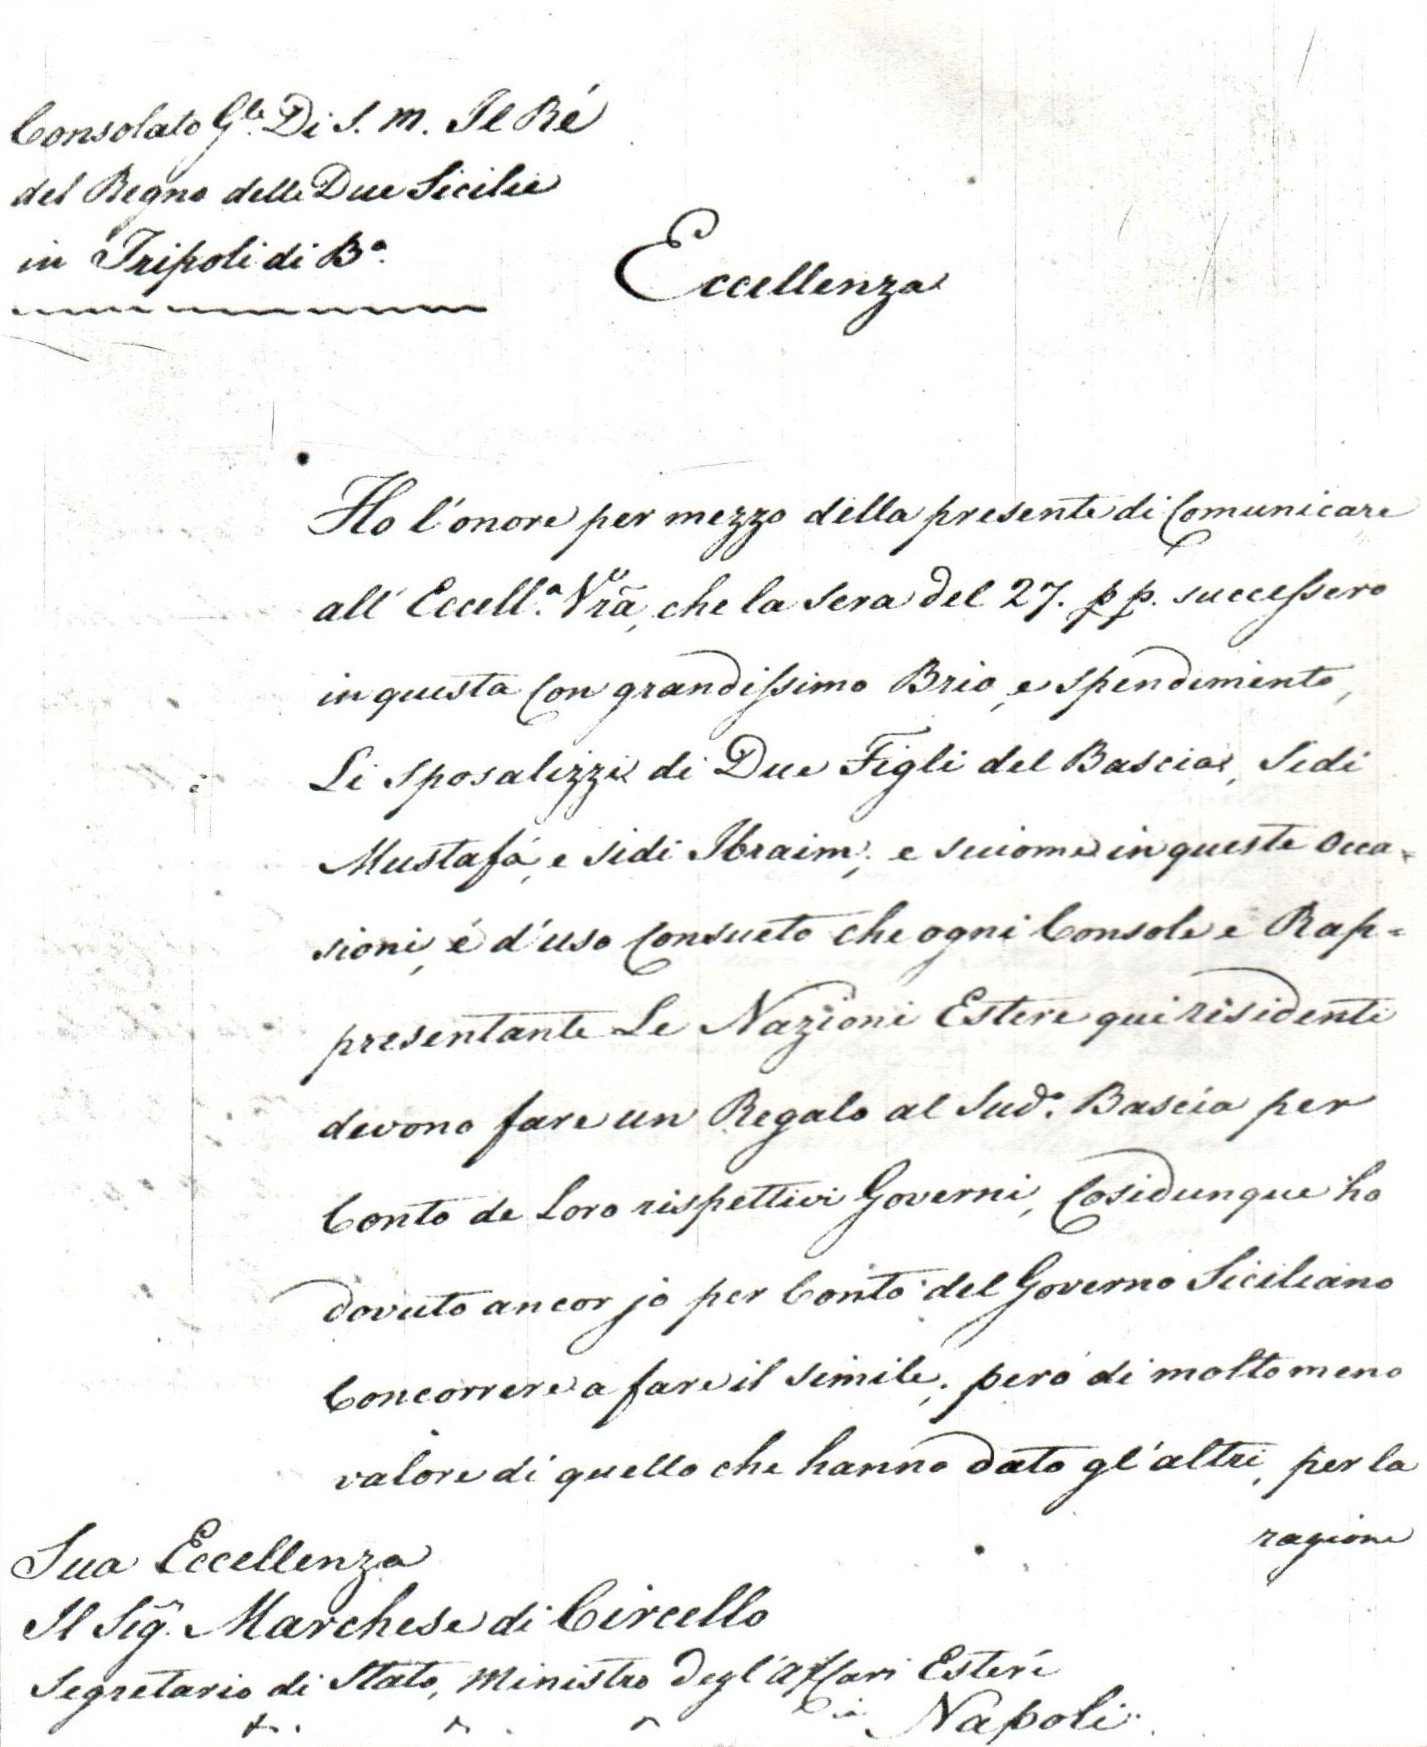 Consolato Gle. Di S. M. Il Ré
del Regno delle Due Sicilie
in Tripoli di Ba.
Eccellenza
Ho l'onore per mezzo della presente di Comunicare
all' Eccella. Vra, che la sera del 27. pp. successero
in questa Con grandissimo Brio, e spendimento,
Li Sposalizzi di Due Figli del Bascia, Sidi
Mustafá, e Sidi Ibraim; e siccome in queste Occa=
sioni, é d'uso Consueto che ogni Console e Rap=
presentante Le Nazioni Estere qui risidenti
devono fare un Regalo al Sudo. Bascia per
Conto de Loro rispettivi Governi, Cosi dunque ho
dovuto ancor jo per Conto del Governo Siciliano
Concorrere a fare il simile; peró di molto meno
valore di quello che hanno dato gl'altri, per la
ragione
Sua Eccellenza
Il Sigr. Marchese di Circello
Segretario di Stato, Ministro degl'affari Esteri
Napoli